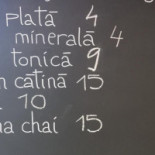 plată 4
minerală 4
tonică 9
cătină 15
10
chai 15